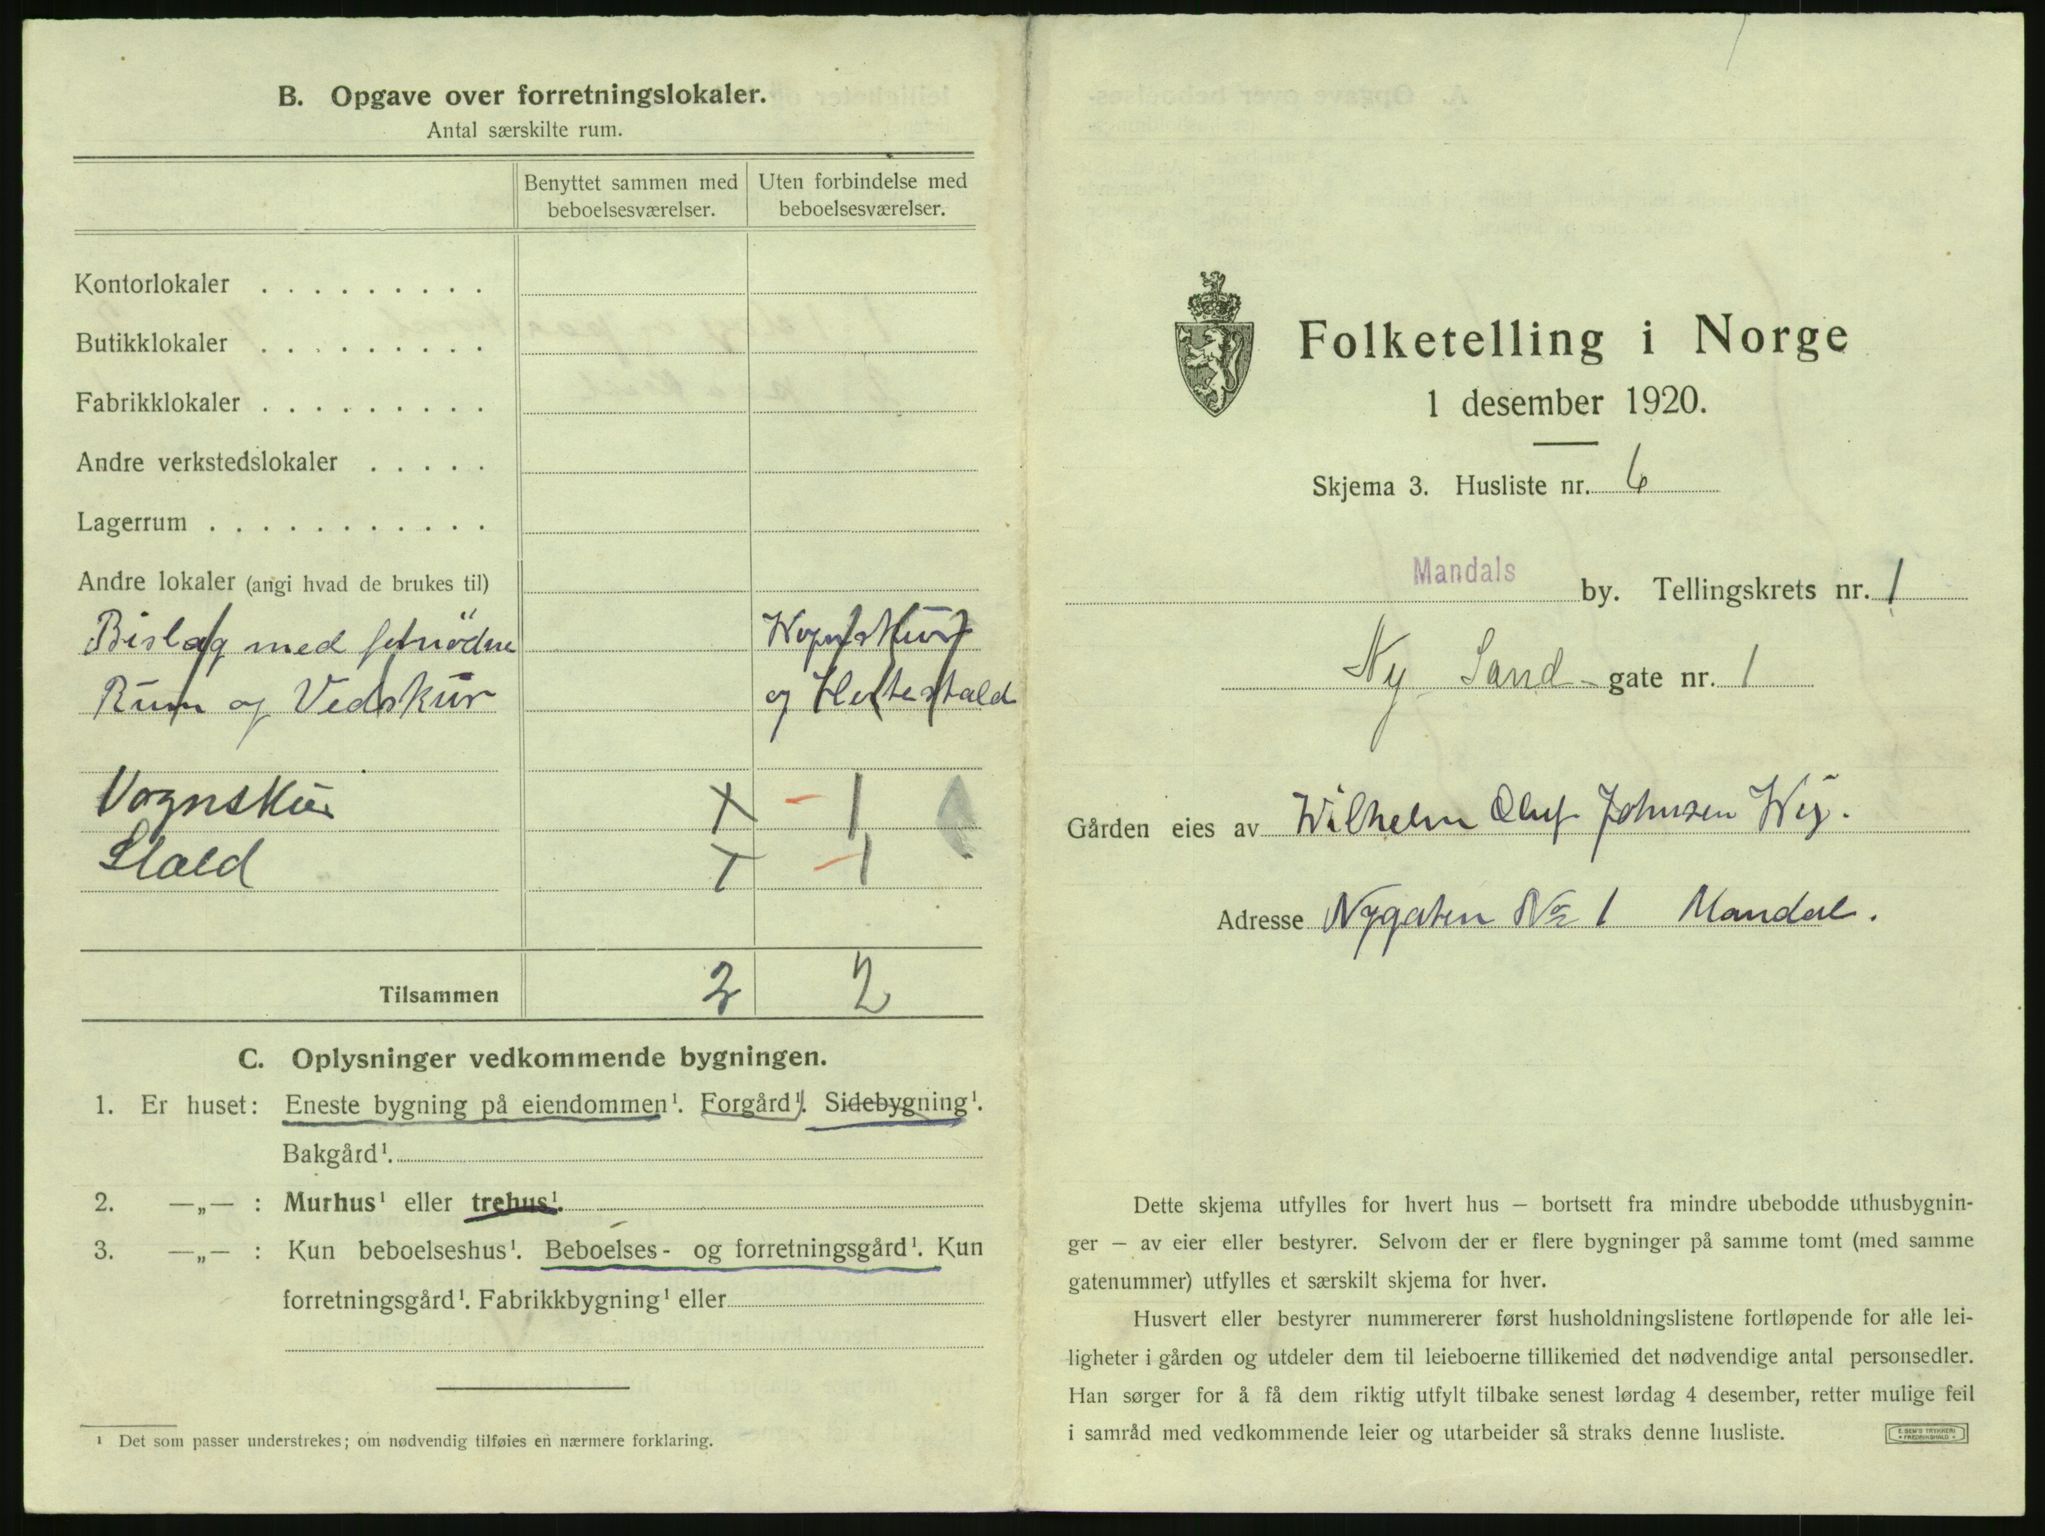 B. Opgave over forretningslokaler.
Antal særskilte rum.
Benyttet sammen med beboelsesværelser.
Uten forbindelse med beboelsesværelser.
Kontorlokaler . . . . . . . . .
Butikklokaler . . . . . . . . .
Fabrikklokaler . . . . . . . . .
Andre verkstedslokaler . . . . .
Lagerrum . . . . . . . . . . .
Andre lokaler (angi hvad de brukes til)
Bislag med
Vognskur
Rum og Vedskur
og Hestestald
Vognskur + - 1
Stald + - 1
Tilsammen 2 2
C. Oplysninger vedkommende bygningen.
1. Er huset: Eneste bygning på eiendommen¹. Forgård¹. Sidebygning¹.
Bakgård¹.
2. —„— : Murhus¹ eller trehus¹.
3. —„— : Kun beboelseshus¹. Beboelses- og forretningsgård¹. Kun
forretningsgård¹. Fabrikkbygning¹ eller
¹ Det som passer understrekes; om nødvendig tilføies en nærmere forklaring.
Folketelling i Norge
1 desember 1920.
Skjema 3. Husliste nr. 6
Mandals by. Tellingskrets nr. 1
Ny Sand - gate nr. 1
Gården eies av Wilhelm Oluf Johnsen Wig.
Adresse Nygaten No 1 Mandal.
Dette skjema utfylles for hvert hus – bortsett fra mindre ubebodde uthusbygnin-
ger – av eier eller bestyrer. Selvom der er flere bygninger på samme tomt (med samme
gatenummer) utfylles et særskilt skjema for hver.
Husvert eller bestyrer nummererer først husholdningslistene fortløpende for alle lei-
ligheter i gården og utdeler dem til leieboerne tillikemed det nødvendige antal personsedler.
Han sørger for å få dem riktig utfylt tilbake senest lørdag 4 desember, retter mulige feil
i samråd med vedkommende leier og utarbeider så straks denne husliste.
E. SEM'S TRYKKERI
FREDRIKSHALD